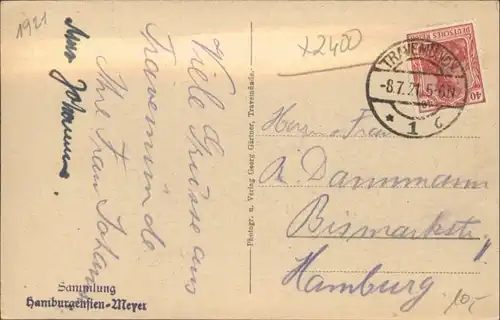 1921
x2400
DEUTSCHES REICH
40
TRAVEMÜNDE
-8.7.21. 5-6N
* 1 c
Viele Grüsse aus
Travemünde
Ihre Frau Johanns
Photogr. u. Verlag Georg Gärtner, Travemünde.
Herrn u. Frau
Dammann
Bismarckstr.
Hamburg
10,-
Sammlung
Hamburgensien-Meyer